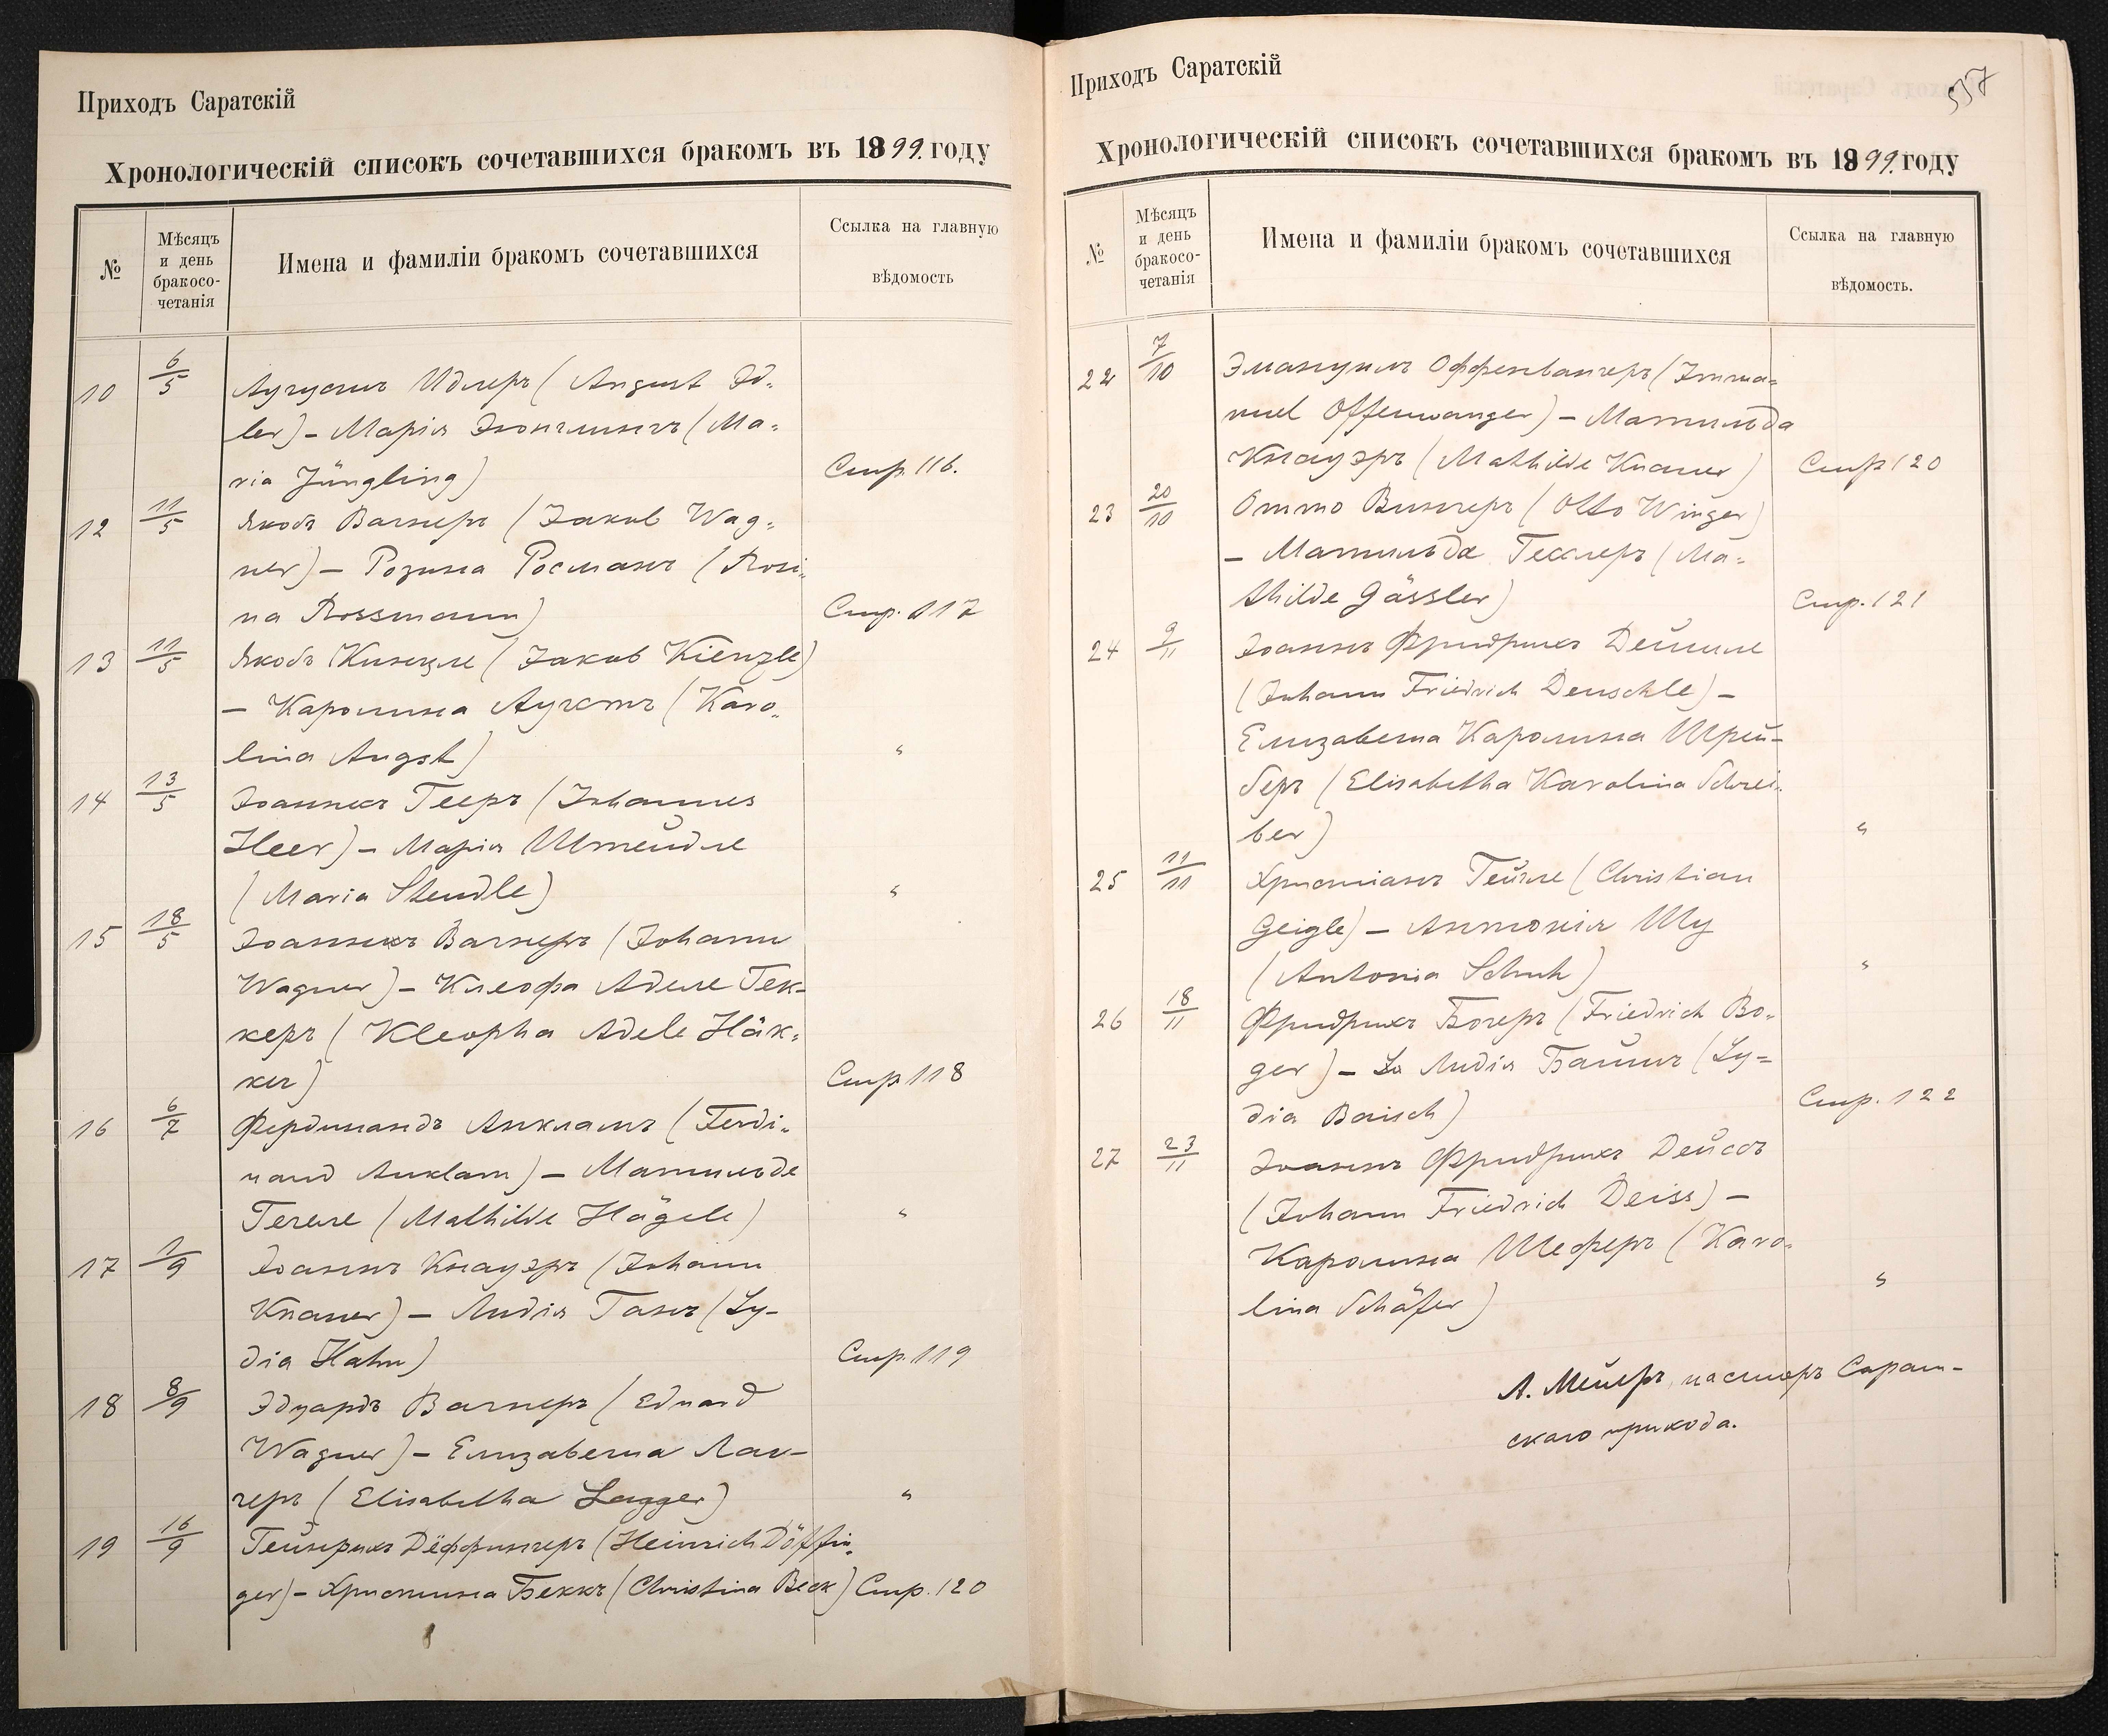 Приходъ Саратскій
Хронологическій списокъ сочетавшихся бракомъ въ 1899. году
№
Мѣсяцъ и день бракосо-четанія
Имена и фамиліи бракомъ сочетавшихся
Ссылка на главную вѣдомость
10 6/5 Аугустъ Идлеръ (August Id-
ler) - Марія Юнглингъ (Ma-
ria Jüngling) Стр. 116.
12 11/5 Якобъ Вагнеръ (Jakob Wag-
ner) - Розина Росманъ (Rosi-
na Rossmann) Стр. 117
13 11/5 Якобъ Кинцле (Jakob Kienzle)
- Каролина Аугстъ (Karo-
lina Augst) "
14 13/5 Іоаннесъ Гееръ (Johannes
Heer) - Марія Штейдле
(Maria Steudle) "
15 18/5 Іоаннъ Вагнеръ (Johann
Wagner) - Клеофа Аделе Гек-
керъ (Kleopha Adele Häk-
ker) Стр 118
16 6/7 Фердинандъ Анкламъ (Ferdi-
nand Anklam) - Матильде
Гегеле (Mathilde Hägele) "
17 1/9 Іоаннъ Кнауэръ (Johann
Knauer) - Лидія Ганъ (Ly-
dia Hahn) Стр. 119
18 8/9 Эдуардъ Вагнеръ (Eduard
Wagner) - Елизавета Лаг-
геръ (Elisabetha Lagger) "
19 16/9 Гейнрихъ Дёффингеръ (Heinrich Döffin-
ger) - Христина Беккъ (Christina Beck) Стр. 120
Приходъ Саратскій
557
Хронологическій списокъ сочетавшихся бракомъ въ 1899. году
№
Мѣсяцъ и день бракосо-четанія
Имена и фамиліи бракомъ сочетавшихся
Ссылка на главную вѣдомость.
22 7/10 Эмануилъ Оффенвангеръ (Imma-
nuel Offenwanger) - Матильда
Кнауэръ (Mathilde Knauer) Стр 120
23 20/10 Отто Вингеръ (Otto Winger)
- Матильда Гесслеръ (Ma-
thilde Gässler) Стр. 121
24 9/11 Іоаннъ Фридрихъ Дейшле
(Johann Friedrich Deuschle) -
Елизавета Каролина Шрей-
беръ (Elisabetha Karolina Schrei-
ber) "
25 11/11 Христіанъ Гейгле (Christian
Geigle) - Антонія Шу
(Antonia Schuh) "
26 18/11 Фридрихъ Богеръ (Friedrich Bo-
ger) - Лидія Байшъ (Ly-
dia Baisch) Стр. 122
27 23/11 Іоаннъ Фридрихъ Дейссъ
(Johann Friedrich Deiss) -
Каролина Шеферъ (Karo-
lina Schäfer) "
А. Мейеръ, пасторъ Сарат-
скаго прихода.